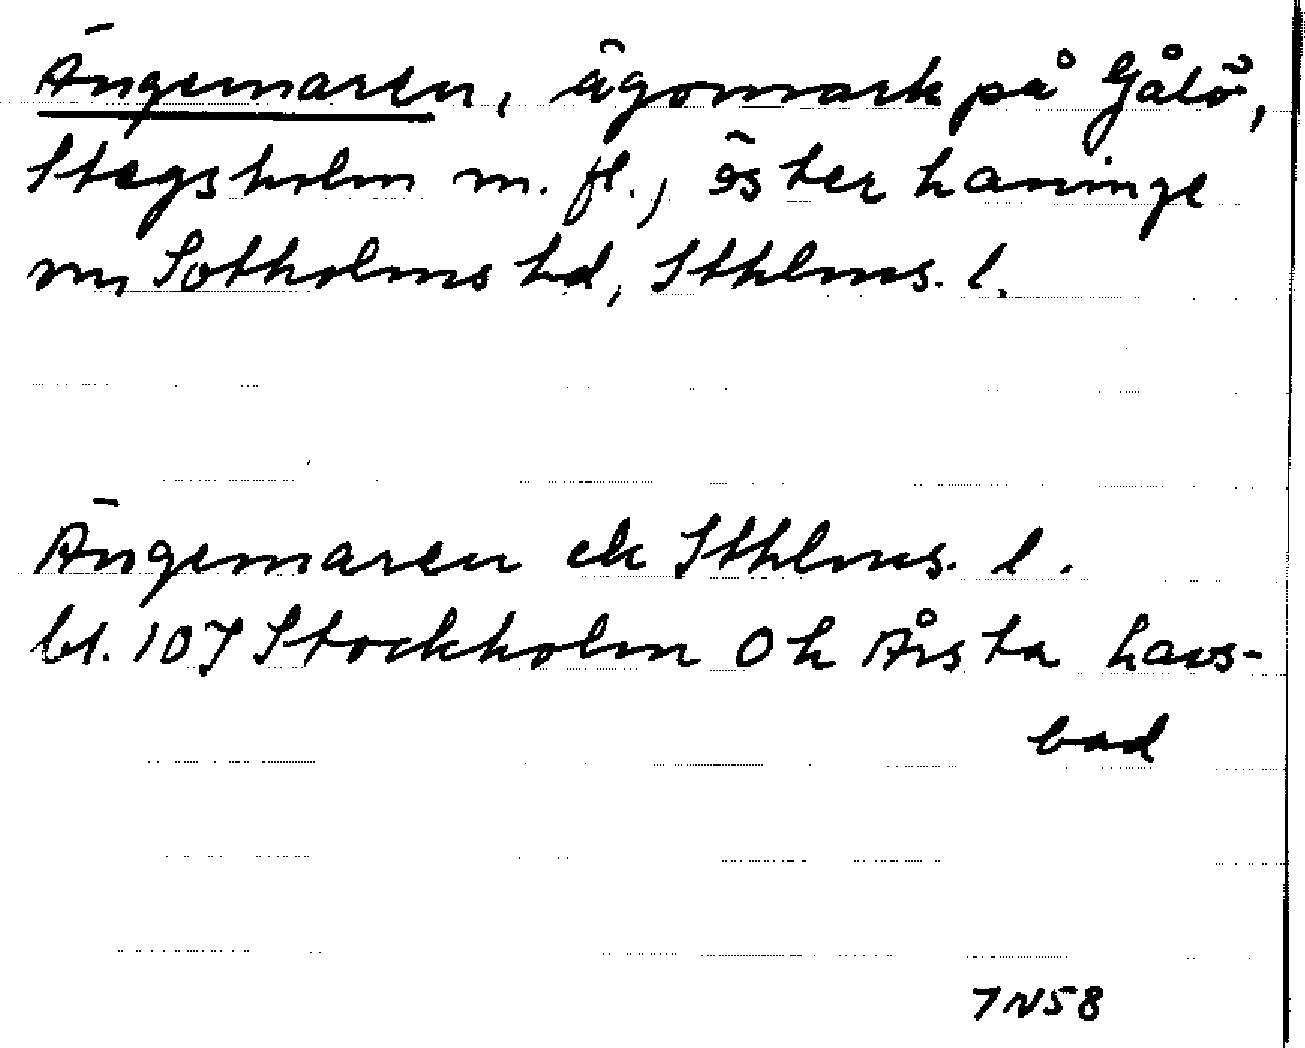 Ängemaren, ägomark på Gålö,
Stegsholm m. fl., Österhaninge
sn, Sotholms hd, Sthlms. l.
Ängemaren ek Sthlms. l.
bl. 107 Stockholm O k Årsta havs-
bad
7N58